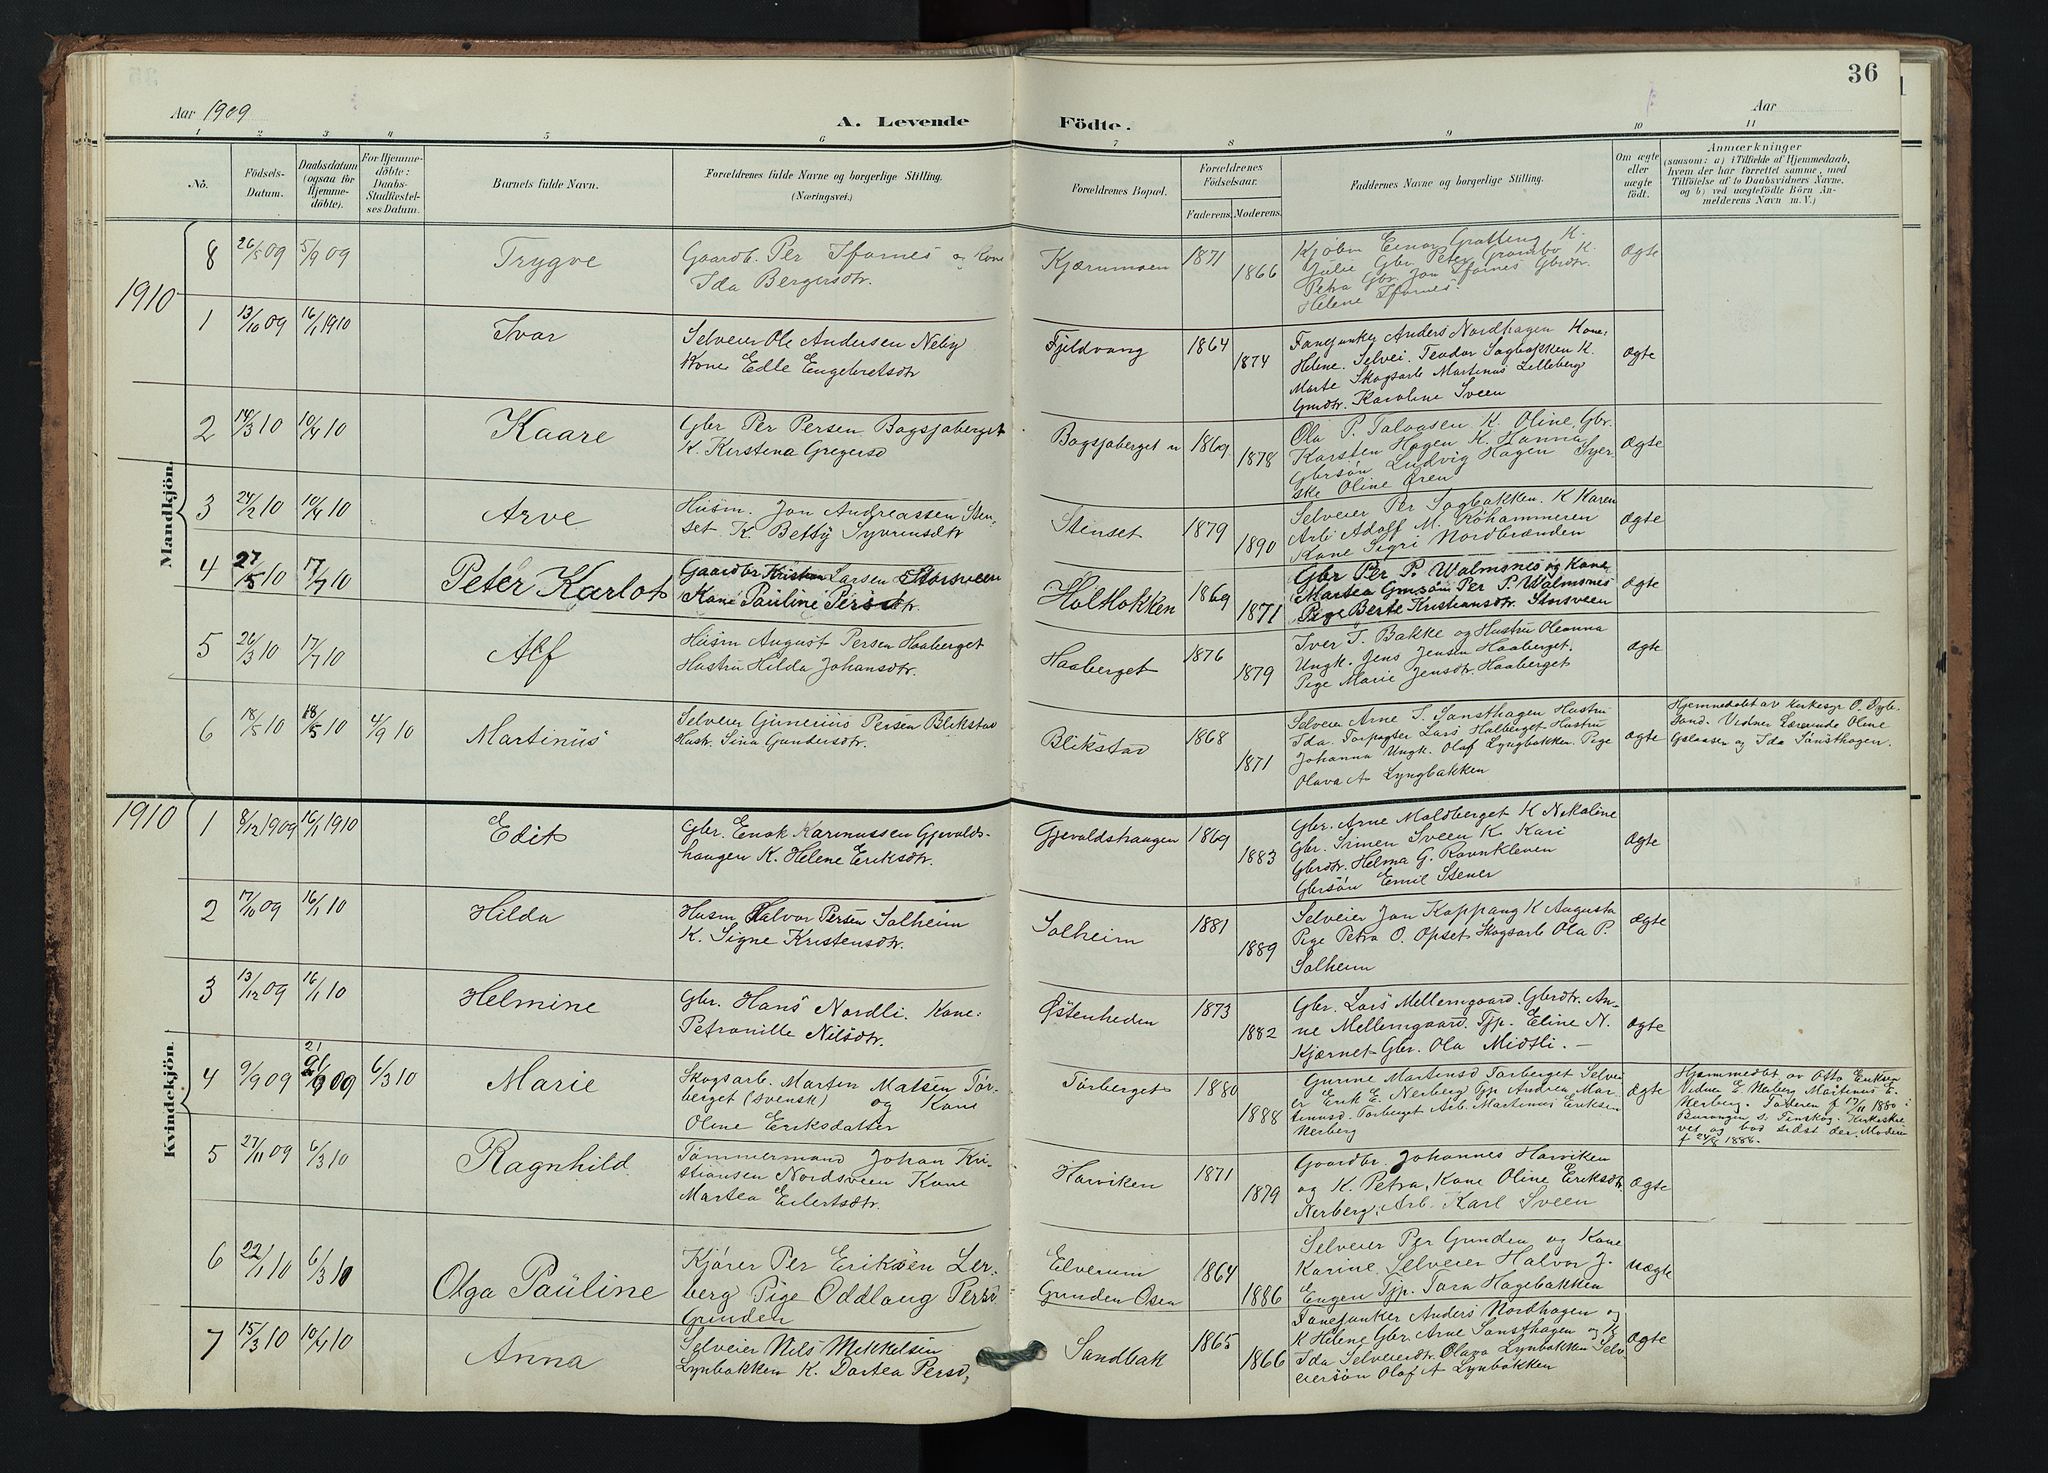 36
Aar 1909
A. Levende Födte.
Aar
1 2 3 4 5 6 7 8 9 10 11
No.
Födsels-Datum.
Daabsdatum (ogsaa för Hjemme-döbte).
For Hjemme-döbte: Daabs-Stadfæstel-ses Datum.
Barnets fulde Navn.
Forældrenes fulde Navne og borgerlige Stilling. (Næringsvei.)
Forældrenes Bopæl.
Forældrenes Födselsaar.
Faderens. Moderens.
Faddernes Navne og borgerlige Stilling.
Om ægte eller uægte födt.
Anmærkninger
(saasom: a) i Tilfælde af Hjemmedaab, hvem der har forrettet samme, med Tilföielse af to Daabsvidners Navne, og b) ved uægtefödte Börn An-melderens Navn m. V.)
Mandkjön.
8 26/5 09 5/9 09 Trygve
Gaardb. Per Ifarnes og Kone
Ida Bergersdtr.
Kjærnmoen 1871 1866
Kjøbm Einar Grøtting K.
Julie Gbr Peter Grambo K.
Petra Gbr. Jon Ifarnes Gbrdtr.
Helene Ifarnes.
Ægte
1910
1 13/10 09 16/1 1910 Ivar
Selveier Ole Andersen Neby
Kone Edle Engebretsdtr
Fjeldvang 1864 1874
Fanejunker Anders Nordhagen Kone
Helene. Selvei. Teodor Sagbakken K.
Marte Skogsarb Martinus Lilleberg
Gmdtr. Karoline Sveen
Ægte
2 14/3 10 10/4 10 Kaare
Gbr Per Persen Bagsjøberget
K. Kirstina Gregersd
Bagsjøberget n 1869 1878
Ola P. Talaasen K. Oline, Gbr.
Karsten Hagen K. Hanna
Gbrsøn Ludvig Hagen Syer-
ske Oline Øren
Ægte
3 24/2 10 10/4 10 Arve
Husm. Jon Andreassen Sten-
set K. Betty Syversdtr
Stenset 1879 1890
Selveier Per Sagbakken. K Karen
Arb Adolf M. Kohammeren
Kone Sigri Nordbrænden
Ægte
4 27/5 10 17/7 10 Peter Karlot
Gaardbr Kristian Larsen Storsveen
Kone Pauline Persdtr.
Holtlokken 1869 1871
Gbr Per P. Walmsnes og Kone
Martea Gmsøn Per P. Walmsnes
Pige Berte Kristiansdtr. Storsveen
Ægte
5 26/3 10 17/7 10 Alf
Husm August Persen Haaberget
Hustru Hilda Johansdtr.
Haaberget 1876 1879
Iver T. Bakke og Hustru Oleanna
Ungk. Jens Jensen Haaberget.
Pige Marie Jensdtr. Haaberget
Ægte
6 18/5 10 18/5 10 4/9 10 Martinus
Selveier Gunerius Persen Blikstad
Hustr. Sina Gundersdtr.
Blikstad 1868 1871
Selveier Arne S. Sansthagen Hustru
Ida. Forpagter Lars Holberget Hustru
Johanna Ungk. Olaf Lyngbakken. Pige
Olava A Lyngbakken
Ægte
Hjemmedøbt av Kirkesgr O. Dyb-
sand. Vidner Lærerinde Oline
og Ida Sansthagen.
Kvindekjön.
1910
1 8/12 1909 16/1 1910 Edit
Gbr. Enok Karinussen Gjevalds-
haugen K. Helene Eriksdtr.
Gjevaldshaugen 1869 1883
Gbr. Arne Moldberget K Nikoline
Gbr. Simen Sveen K. Kari
Gbrdtr. Helma G. Ravnkleven
Gbrsøn Emil Stener
Ægte
2 17/10 09 16/1 10 Hilda
Husm Halvor Persen Solheim
K. Signe Kristensdtr.
Solheim 1881 1889
Selveier Jon Koppang K Augusta
Pige Petra O. Opset Skogsarb Ola P.
Solheim
Ægte
3 13/12 09 16/1 10 Helmine
Gbr. Hans Nordli. Kone:
Petronille Nilsdtr.
Østenheden 1873 1882
Gbr. Lars Mellemgaard. Gbrdtr. An-
ne Mellemgaard. Tjp. Eline N.
Kjærnet Gbr. Ola Midtli. —
Ægte
4 9/9 09 21/9 09 6/3 10 Marie
Skogsarb. Martin Matsen Tør-
berget (svensk) og Kone
Oline Eriksdatter
Tørberget 1880 1888
Gurine Martinsd Tørberget Selvei
er Erik E. Nerberg Tjp Andrea Mar-
tinusd. Tørberget Arb. Martinus Eriksen
Nerberg
Ægte
Hjemmedøbt av Otto Eriksen
Vidner E Nerberg Martinus E.
Nerberg. Faderen f 17/11 1880 i
s. Finskog, Kirkeskre
vet og bod sidst der. Moderen
f 24/8 1888.
5 27/11 09 6/3 10 Ragnhild
Tømmermand Johan Kri-
stiansen Nordsveen Kone
Martea Eilertsdtr.
Harviken 1871 1879
Gaardbr. Johannes Harviken
og K. Petra, Kone Oline Eriksdtr
Nerberg, Arb. Karl Sveen
Ægte
6 22/1 10 6/3 10 Olga Pauline
Kjører Per Eriksen Ler-
berg Pige Oddlaug Persd.
Grunden
Elverum
Grunden Osen
1864 1886
Selveier Per Grunden og Kone
Karine. Selveier Halvor J.
Engen Tjp. Tora Hagebakken
Uægte
7 15/3 10 10/4 10 Anna
Selveier Nils Mikkelsen
Lynbakken K. Dortea Persd,
Sandbak 1865 1866
Fanejunker Anders Nordhagen og
K Helene Gbr. Arne Sansthagen og K
Ida Selveierdtr. Olava Lynbakken Selv
eiersøn Olaf A Lynbakken
Ægte